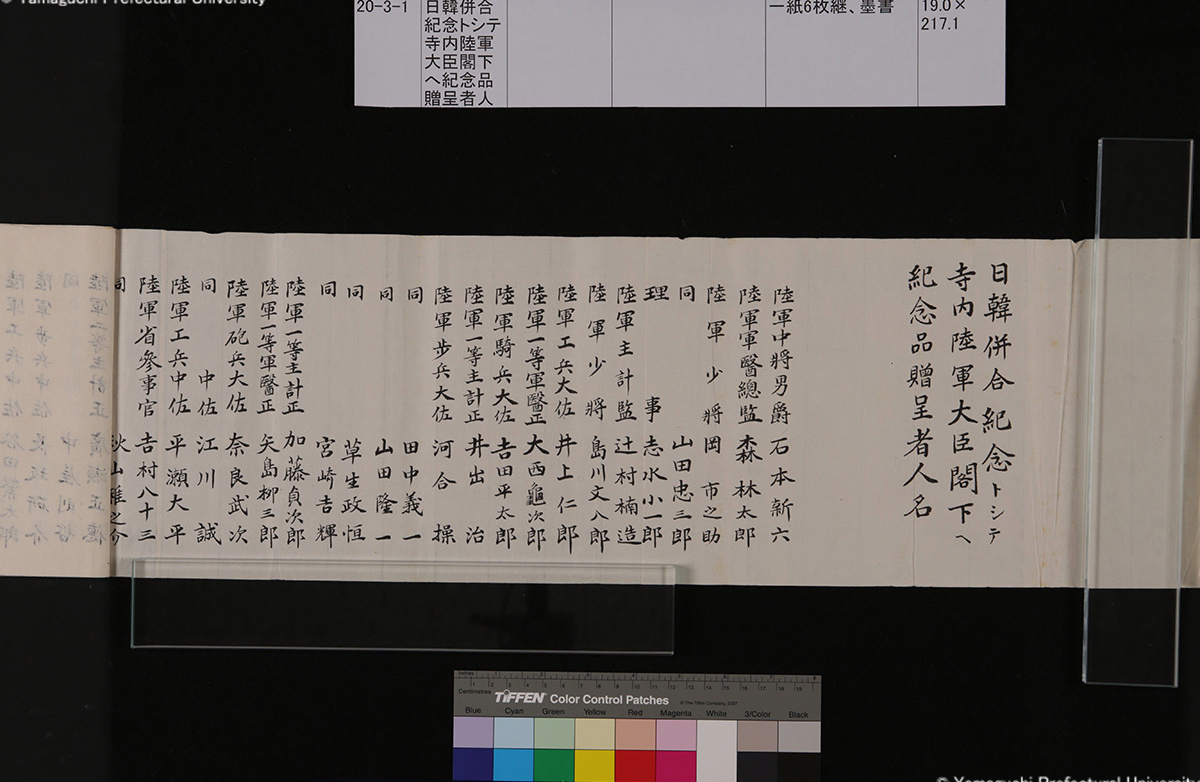 © Yamaguchi Prefectural University
20-3-1
日韓併合
紀念トシテ
寺内陸軍
大臣閣下
へ紀念品
贈呈者人
一紙6枚継、墨書
19.0×
217.1
日韓併合紀念トシテ
寺内陸軍大臣閣下ヘ
紀念品贈呈者人名
陸軍中將男爵 石本新六
陸軍軍醫總監 森林太郎
陸軍少將 岡市之助
同 山田忠三郎
理事 志水小一郎
陸軍主計監 辻村楠造
陸軍少將 島川文八郎
陸軍工兵大佐 井上仁郎
陸軍一等軍醫正 大西龜次郎
陸軍騎兵大佐 吉田平太郎
陸軍一等主計正 井出治
陸軍步兵大佐 河合操
同 田中義一
同 山田隆一
同 草生政恒
同 宮崎吉輝
陸軍一等主計正 加藤貞次郎
陸軍一等軍醫正 矢島柳三郎
陸軍砲兵大佐 奈良武次
同 中佐 江川誠
陸軍工兵中佐 平瀬大平
陸軍省參事官 吉村八十三
同 秋山雅之介
Inches
Centimetres
TIFFEN Color Control Patches
© The Tiffen Company, 2007
Blue Cyan Green Yellow Red Magenta White 3/Color Black
© Yamaguchi Prefectural Universit